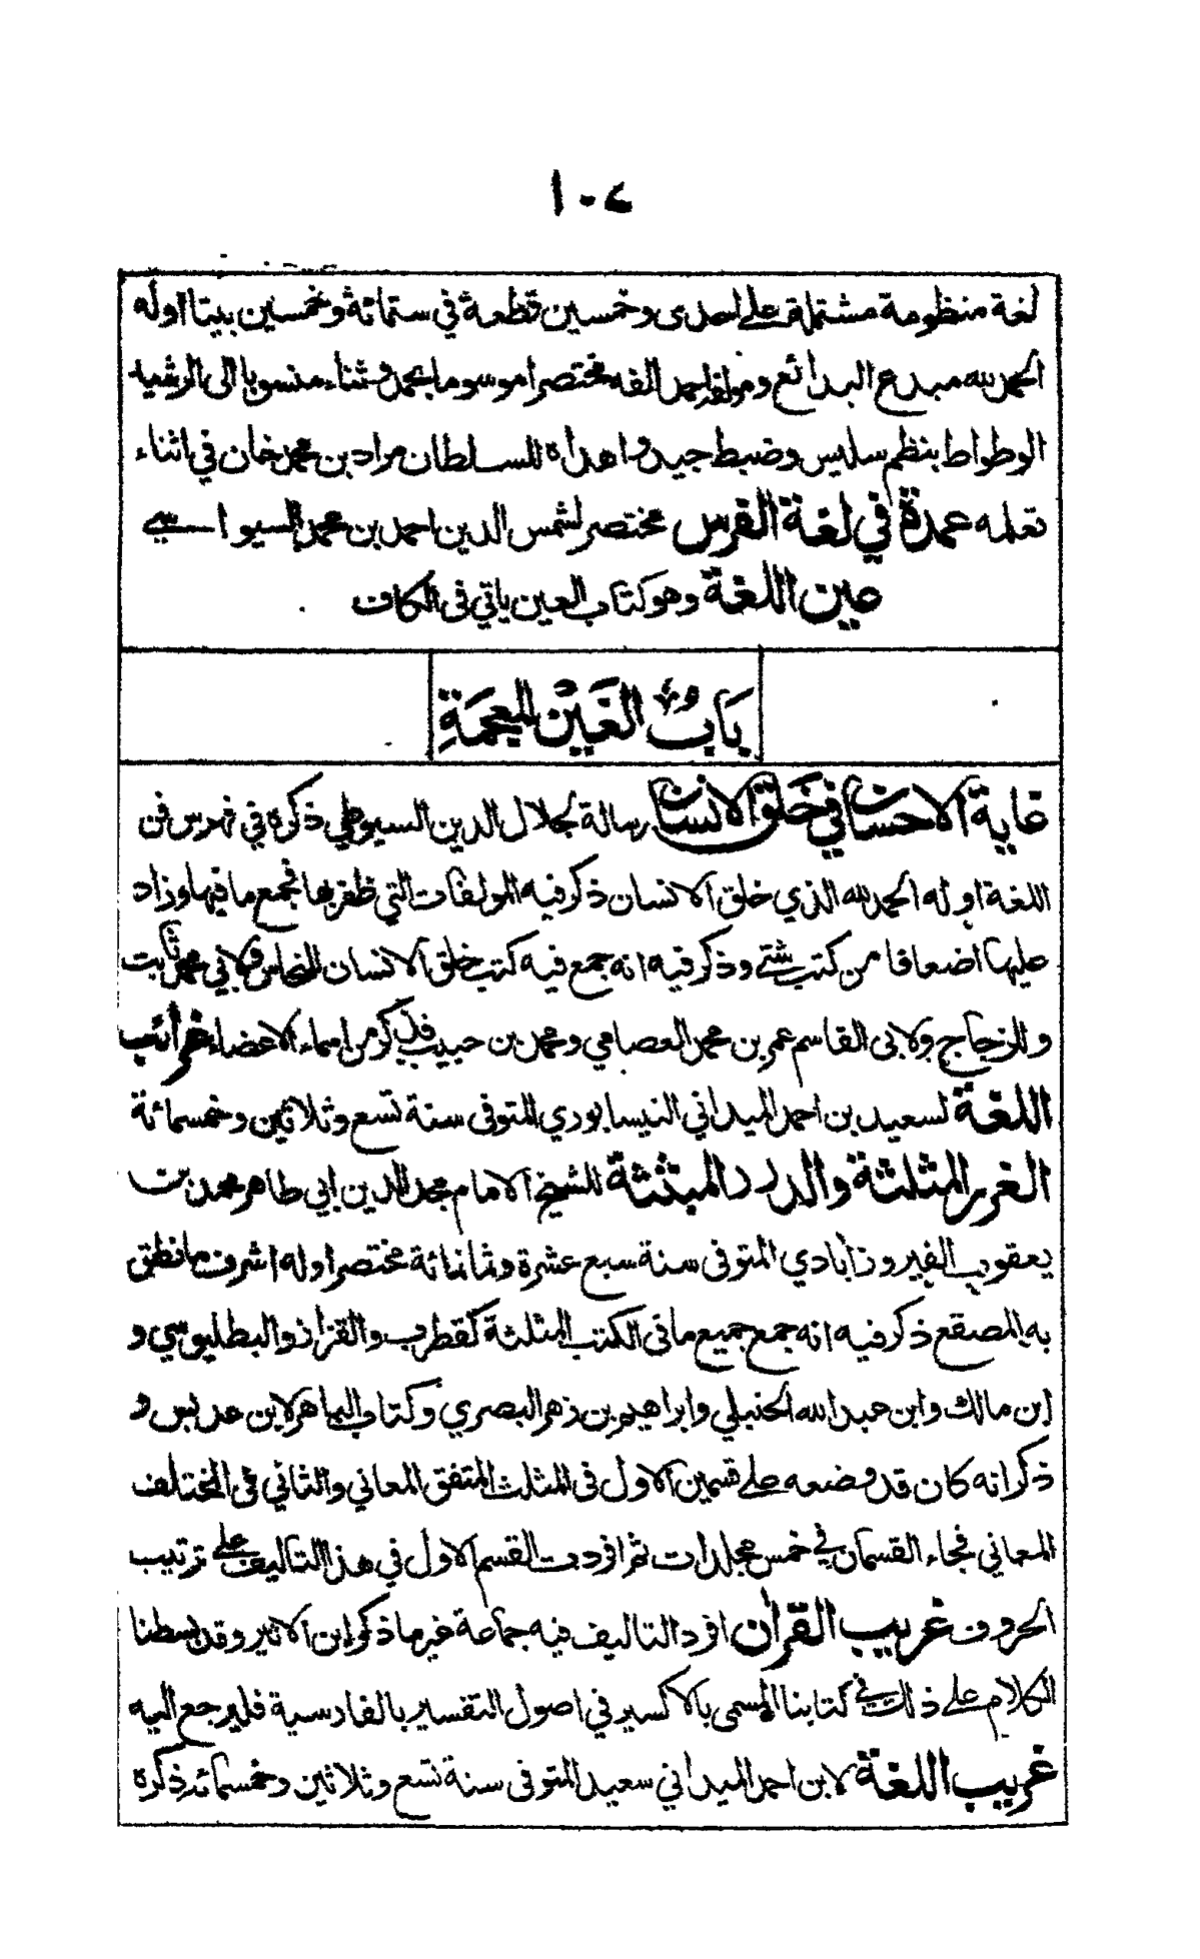 ١٠٤
لغة منظومة مشتملة على احدى وخمسين قطعة في ستمائة وخمسين بيتا اوله
الحمد لله مبدع البدائع ومولفه احمد الفه مختصرا موسوما بحمد وثناء منسوبا الى الرشيد
الوطواط بنظم سليس وضبط جيد واهداه للسلطان مراد بن محمد خان في اثناء
تعلمه عمدة في لغة الفرس مختصر لشمس الدين احمد بن محمد السيواسي
عين اللغة وهو كتاب العين ياتي في الكاف
باب الغين المعجمة
غاية الاحسان في خلق الانسان رسالة لجلال الدين السيوطي ذكره في فهرس فن
اللغة اوله الحمد لله الذي خلق الانسان ذكر فيه المولفات التي ظفر بها فجمع ما فيها وزاد
عليها اضعافا من كتب شتى وذكر فيه انه جمع فيه كتب خلق الانسان للنحاس ولابي محمد ثابت
والزجاج ولابي القاسم عمر بن محمد العصامي ومحمد بن حبيب فذكر من اسماء الاعضاء غرائب
اللغة لسعيد بن احمد الميداني النيسابوري المتوفى سنة تسع وثلاثين وخمسمائة
الغرر المثلثة والدرر المبثثة للشيخ الامام مجد الدين ابي طاهر محمد بن
يعقوب الفيروزآبادي المتوفى سنة سبع عشرة وثمانمائة مختصر اوله اشرف ما نطق
به المصقع ذكر فيه انه جمع جميع ما في الكتب المثلثة كقطرب والقزاز والبطليوسي و
ابن مالك وابن عبد الله الحنبلي وابراهيم بن زهر البصري وكتاب الباهر لابن عديس و
ذكر انه كان قد وضعه على قسمين الاول في المثلث المتفق المعاني والثاني في المختلف
المعاني فجاء القسمان في خمس مجلدات ثم افردت القسم الاول في هذا التاليف على ترتيب
الحروف غريب القرآن افرد التاليف فيه جماعة غير ما ذكره ابن الاثير وقد بسطنا
الكلام على ذلك في كتابنا المسمى بالاكسير في اصول التفسير بالفارسية فليرجع اليه
غريب اللغة لابن احمد الميداني سعيد المتوفى سنة تسع وثلاثين وخمسمائة ذكره